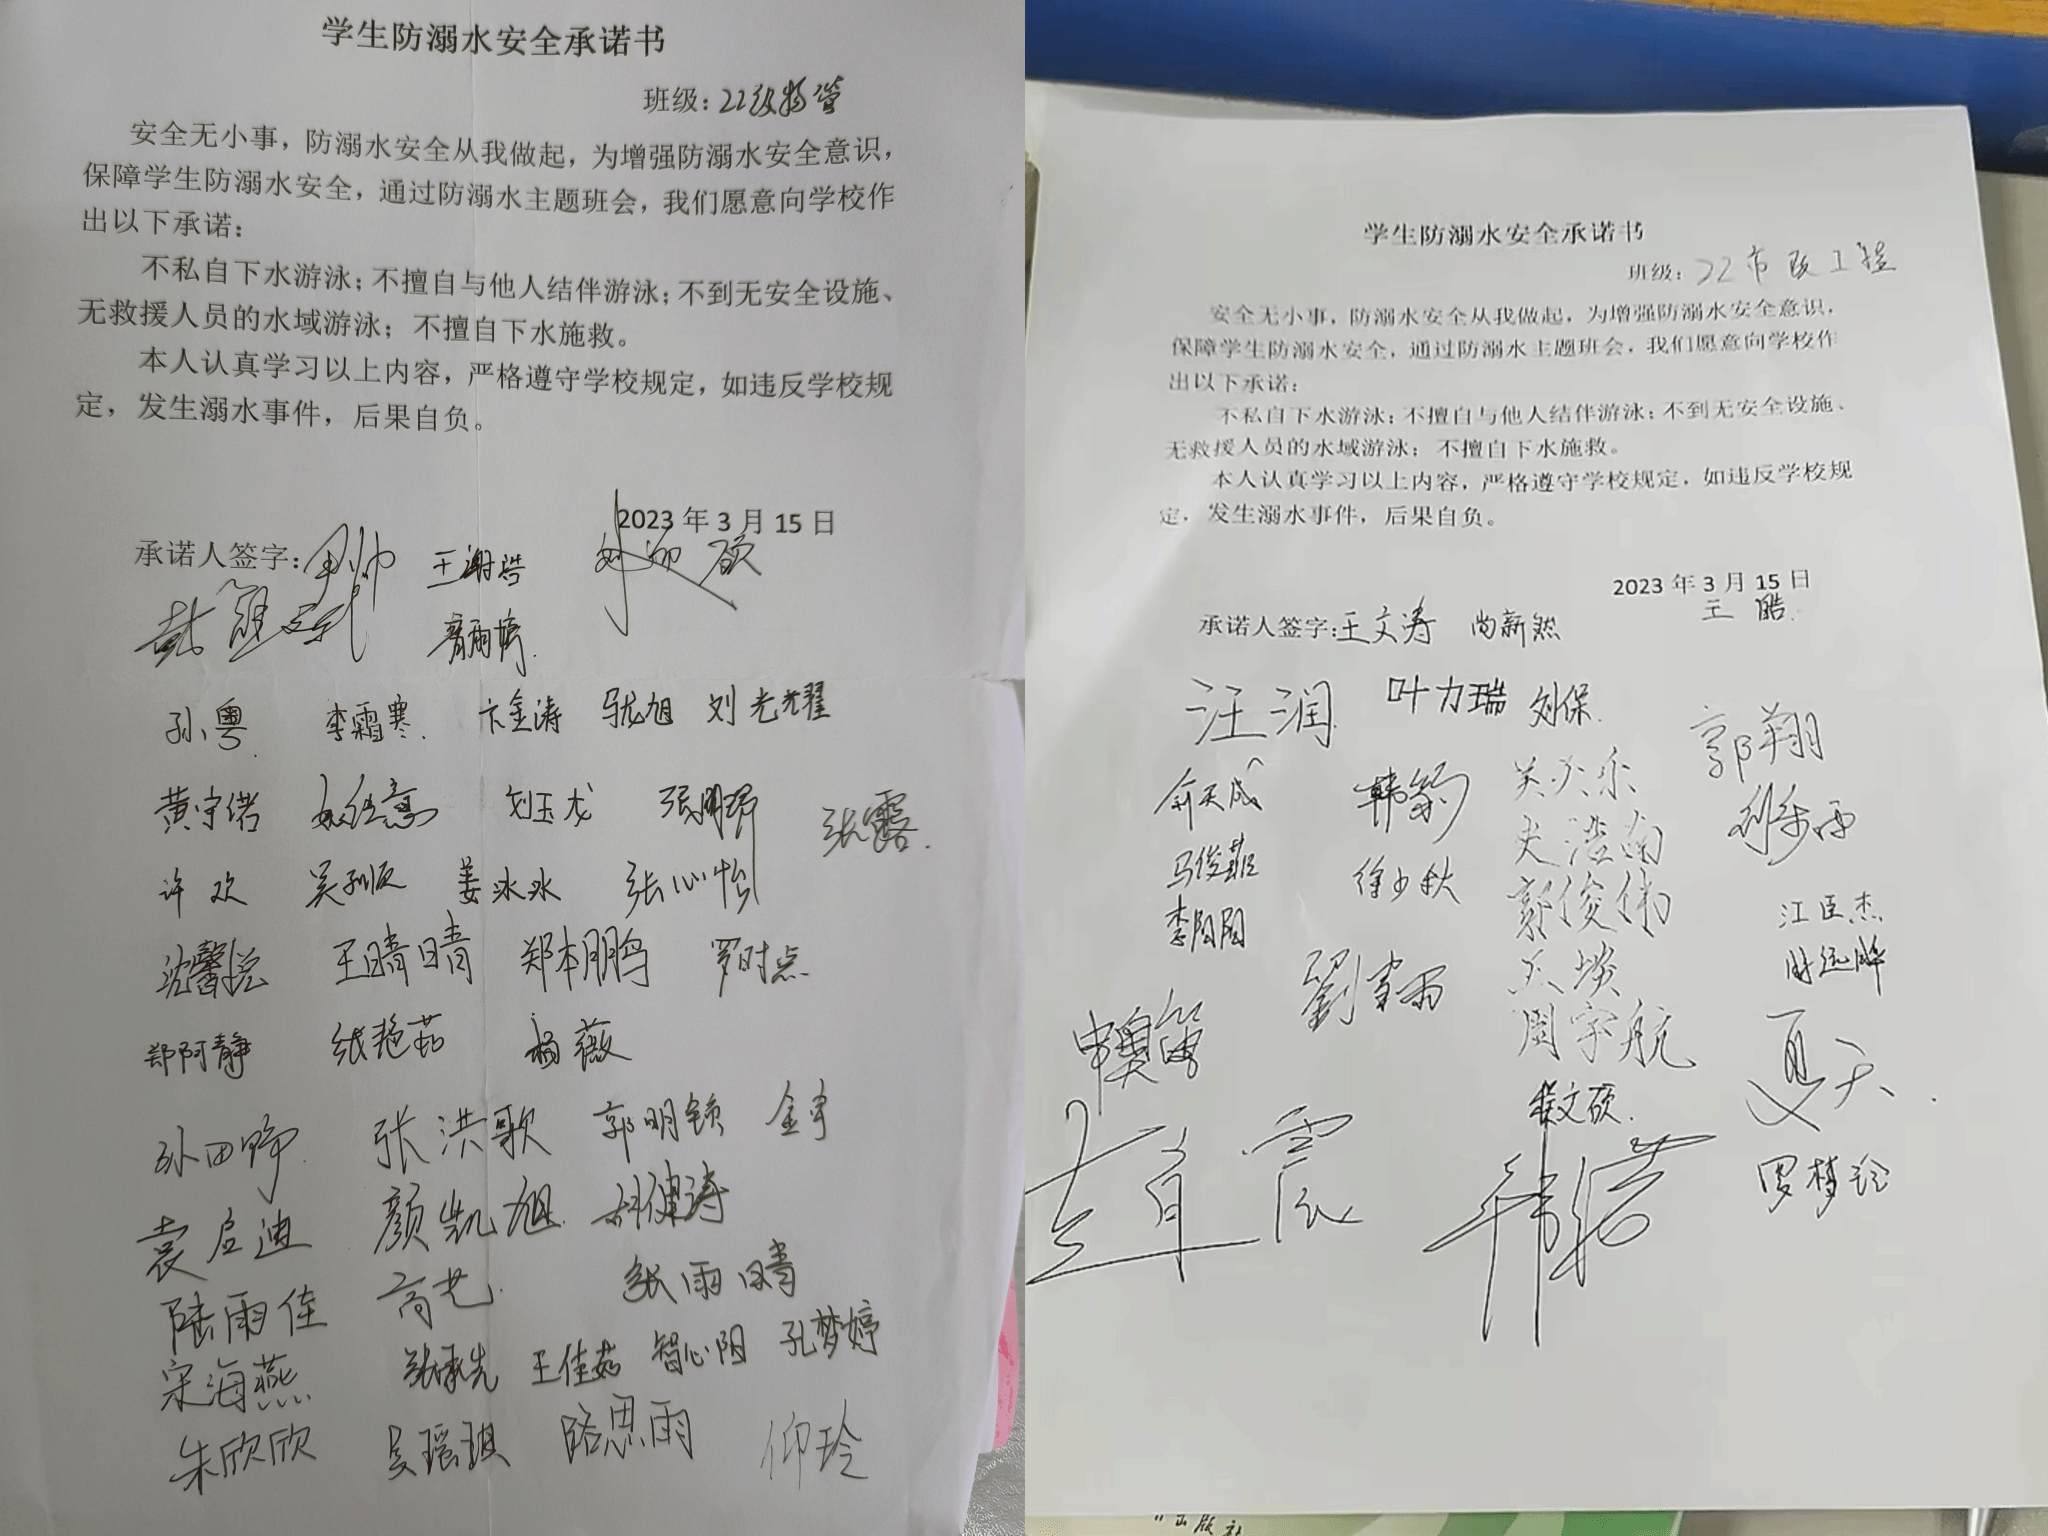 学生防溺水安全承诺书
班级:22级物管
安全无小事，防溺水安全从我做起，为增强防溺水安全意识，
保障学生防溺水安全，通过防溺水主题班会，我们愿意向学校作
出以下承诺：
不私自下水游泳；不擅自与他人结伴游泳；不到无安全设施、
无救援人员的水域游泳；不擅自下水施救。
本人认真学习以上内容，严格遵守学校规定，如违反学校规
定，发生溺水事件，后果自负。
2023 年 3 月 15 日
承诺人签字:
孙粤 李霜寒 卞金涛 马龙旭 刘光耀
黄守诺 刘玉龙 张明珠 张露
许欢 吴孙顺 姜冰冰 张心怡
沈馨悦 王晴晴 郑本鹏 罗时点
郑阿静 张艳茹 杨薇
孙田野 张洪歌 郭明锁 金宇
袁启迪 颜凯旭 胡健涛
陆雨佳 高艺 张雨晴
宋海燕 张承先 王佳茹 智心阳 孔梦婷
朱欣欣 吴瑶琪 路思雨 仰玲
学生防溺水安全承诺书
班级:22市政工程
安全无小事，防溺水安全从我做起，为增强防溺水安全意识，
保障学生防溺水安全，通过防溺水主题班会，我们愿意向学校作
出以下承诺：
不私自下水游泳；不擅自与他人结伴游泳；不到无安全设施、
无救援人员的水域游泳；不擅自下水施救。
本人认真学习以上内容，严格遵守学校规定，如违反学校规
定，发生溺水事件，后果自负。
2023 年 3 月 15 日
王皓
承诺人签字:王文涛 尚新然
汪润 叶力瑞 刘保 郭翔
俞天成 韩豹
马俊菲 徐少秋 郭俊伟
李阳阳 江臣杰
周宇航
夏天
罗梦玲
出版社